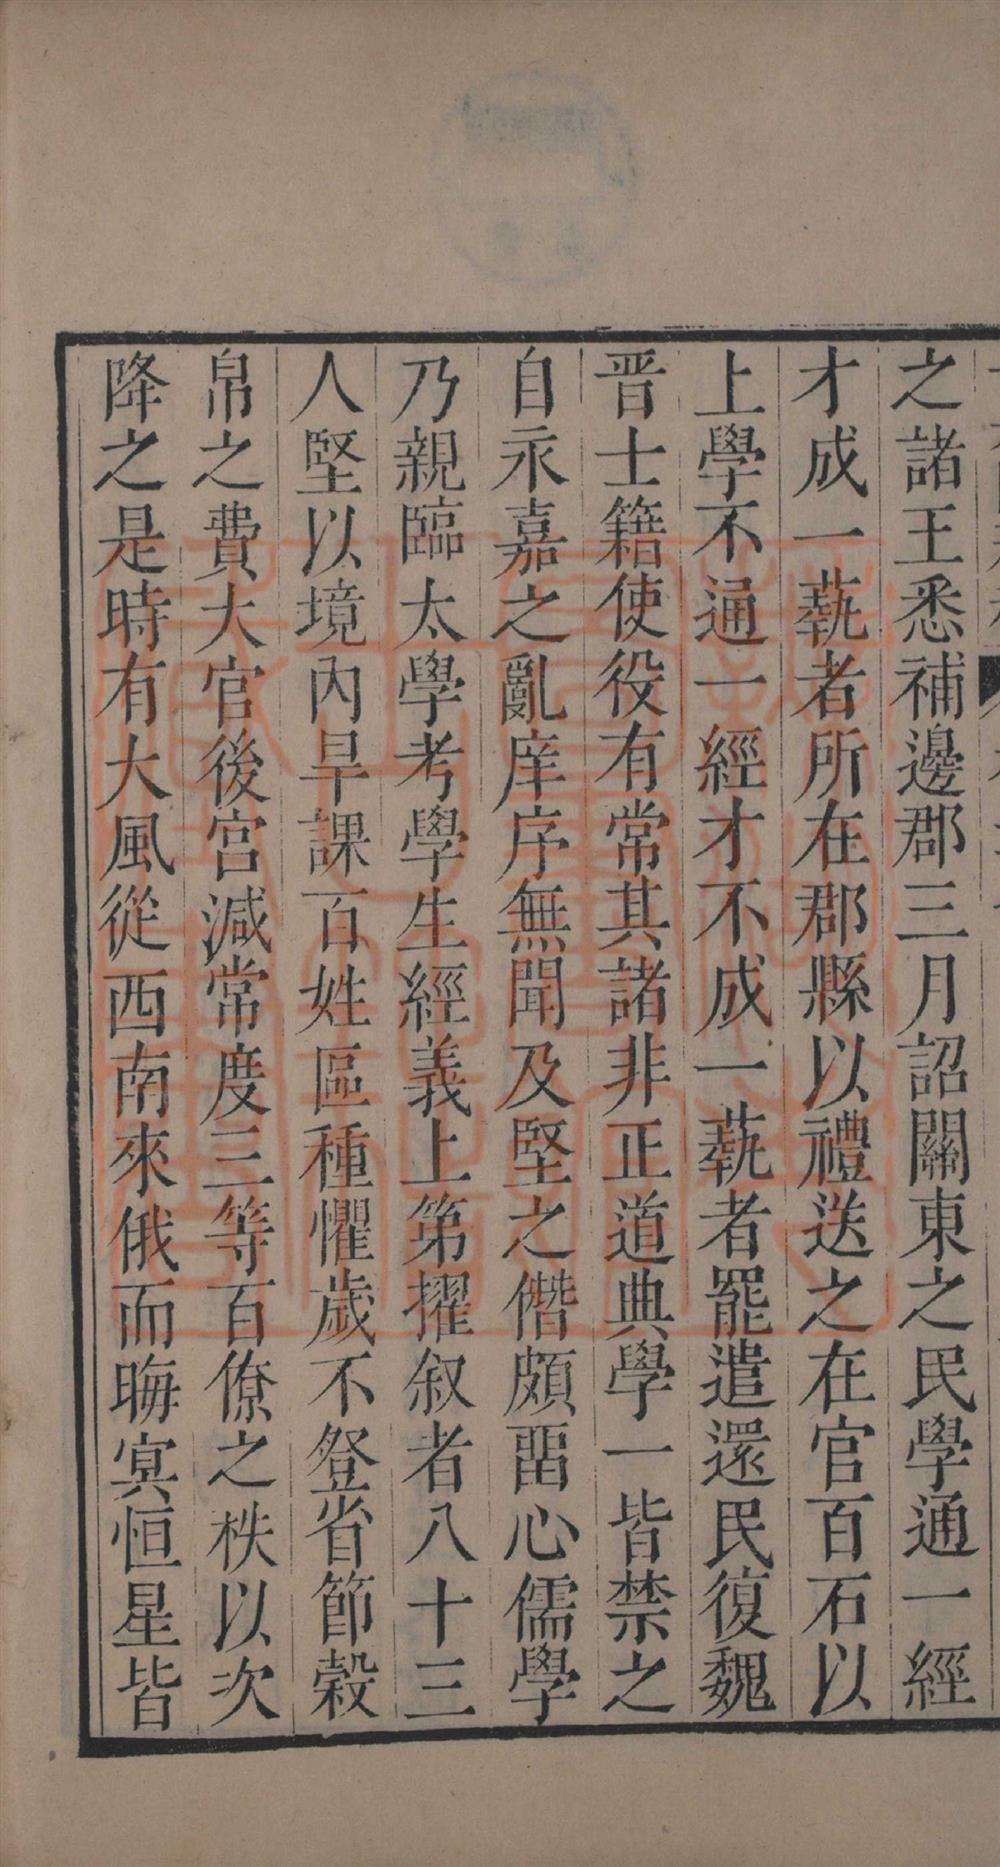 之諸王悉補邊郡三月詔關東之民學通一經
才成一蓺者所在郡縣以禮送之在官百石以
上學不通一經才不成一蓺者罷遣還民復魏
晋士籍使役有常其諸非正道典學一皆禁之
自永嘉之亂庠序無聞及堅之僭頗畱心儒學
乃親臨太學考學生經義上第擢叙者八十三
人堅以境內旱課百姓區種懼歲不登省節糓
帛之費大官後宮減常度三等百僚之秩以次
降之是時有大風從西南來俄而晦冥恒星皆